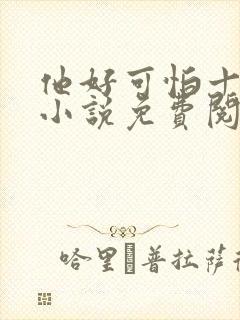 他好可怕十
小说免费阅
哈里·普拉萨